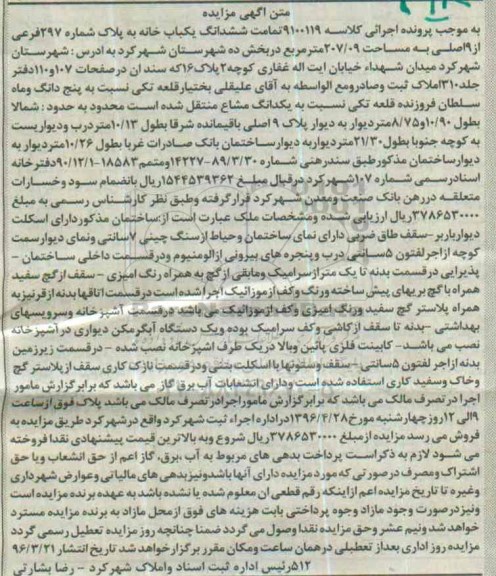 متن آگهی مزایده
به موجب پرونده اجرائی کلاسه ۹۱۰۰۱۱۹ تمامت ششدانگ یکباب خانه به پلاک شماره ۲۹۷فرعی
از۹اصلی به مساحت ۲۰۷/۰۹مترمربع دربخش ده شهرستان شهرکرد به ادرس: شهرستان
شهرکرد میدان شهداء خیابان ایت اله غفاری کوچه۲پلاک۱۶که سند ان درصفحات ۱۰۷و۱۱۰دفتر
جلد۳۱۰املاک ثبت وصادرومع الواسطه به آقای علیقلی بختیارقلعه تکی نسبت به پنج دانگ وماه
سلطان فروزنده قلعه تکی نسبت به یکدانگ مشاع منتقل شده است محدود به حدود: شمالا
بطول ۱۰/۹۰و۸/۷۵متردیوار به دیوار پلاک ۹ اصلی باقیمانده شرقا بطول ۱۰/۱۳متردرب ودیواریست
به کوچه جنوبا بطول۲۱/۳۰متردیواربه دیوارساختمان بانک صادرات غربا بطول ۱۰/۲۶متردیوار به
دیوارساختمان مذکورطبق سندرهنی شماره ۸۹/۳/۳۰-۱۴۲۲۷ومتمم۱۸۵۸۳-۹۰/۱۲/۱دفترخانه
اسنادرسمی شماره ۱۰۷شهرکرد درقبال مبلغ ۱۵۴۴۵۳۹۳۶۲ریال بانضمام سود وخسارات
متعلقه دررهن بانک صنعت ومعدن شهرکرد قرارگرفته وطبق نظر کارشناس رسمی به مبلغ
۳۷۸۶۵۳۰۰۰۰ریال ارزیابی شده ومشخصات ملک عبارت است از:ساختمان مذکوردارای اسکلت
دیوارباربر-سقف طاق ضربی دارای نمای ساختمان وحیاط ازسنگ چینی ۷سانتی ونمای دیوارسمت
کوچه ازاجرلفتون ۵سانتی درب وپنجره های بیرونی ازالومنیوم ودرقسمت داخلی ساختمان -
پذیرایی درقسمت بدنه تا یک مترازسرامیک ومابقی ازگچ به همراه رنگ امیزی - سقف ازگچ سفید
همراه با گچ بریهای پیش ساخته ورنگ وکف ازموزائیک اجراشده است درقسمت اتاقها بدنه ازقرنیزبه
همراه پلاستر گچ سفید ورنگ امیزی وکف ازموزائیک می باشد درقسمت آشپزخانه وسرویسهای
بهداشتی -بدنه تا سقف ازکاشی وکف سرامیک بوده ویک دستگاه آبگرمکن دیواری درآشپزخانه
نصب می باشد- کابینت فلزی پائین وبالا دریک طرف اشپزخانه نصب شده - درقسمت زیرزمین
بدنه ازاجر لفتون ۵سانتی- سقف وستونها بااسکلت بتنی ودرقسمت نازک کاری سقف ازپلاستر گچ
وخاک وسفید کاری استفاده شده است ودارای انشعابات آب برق گاز می باشد که برابرگزارش مامور
اجرا درتصرف مالک می باشد که برابرگزارش ماموراجرادرتصرف مالک می باشد پلاک فوق ازساعت
۹الی ۱۲روزچهارشنبه مورخ ۱۳۹۶/۴/۲۸دراداره اجراء ثبت شهرکرد واقع درشهرکرد طریق مزایده به
فروش می رسد مزایده ازمبلغ ۳۷۸۶۵۳۰۰۰۰ریال شروع وبه بالاترین قیمت پیشنهادی نقدا فروخته
می شود لازم به ذکراست پرداخت بدهی های مربوط به آب ،برق، گاز اعم از حق انشعاب ویا حق
اشتراک ومصرف درصورتی که مورد مزایده دارای آنها باشدونیزبدهی های مالیاتی وعوارض شهرداری
وغیره تا تاریخ مزایده اعم ازاینکه رقم قطعی ان معلوم شده یا نشده باشد به عهده برنده مزایده است
ونیزدرصورت وجود مازاد وجوه پرداختی بابت هزینه های فوق ازمحل مازاد به برنده مزایده مسترد
خواهد شد ونیم عشر وحق مزایده نقدا وصول می گردد ضمنا چنانچه روز مزایده تعطیل رسمی گردد
مزایده روز اداری بعداز تعطیلی درهمان ساعت ومکان مقرربرگزارخواهد شد تاریخ انتشار ۹۶/۳/۲۱
۵۱۲رئیس اداره ثبت اسناد واملاک شهرکرد - رضا بشارتی